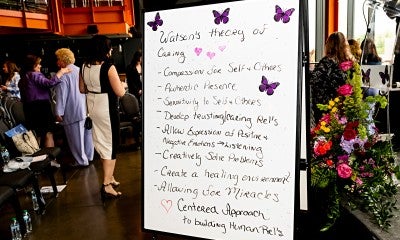 Watson's theory of
Caring
- Compassion for Self & Others
- Authentic Presence
- Sensitivity to Self & Others
- Develop trusting/caring Rel's
- Allow Expression of Positive &
Negative Emotions → Listening
- Creatively Solve Problems
- Create a healing environment
- Allowing for Miracles
Centered Approach
to building Human Rel's